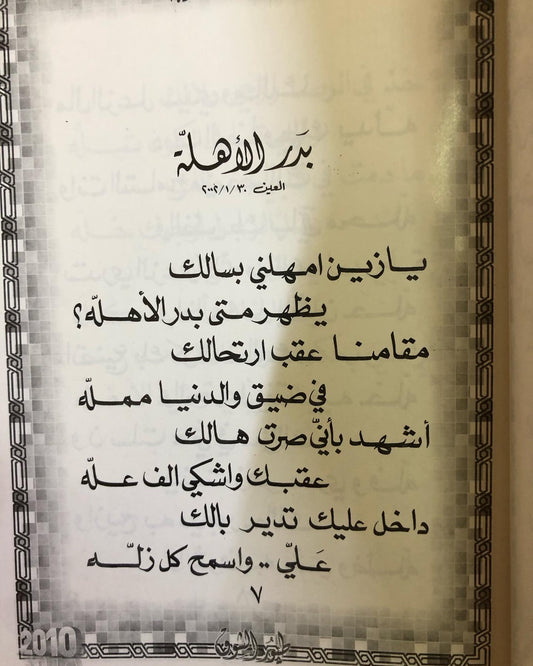 بَدر الأهلّة
العين ٢٠٠٢/١/٣٠
يا زين امهلني بسالك
يظهر متى بدر الأهلّه؟
مقامنا عقب ارتحالك
في ضيق والدنيا مملّه
أشهد بأنيّ صرت هالك
عقبك واشكي الف علّه
داخل عليك تدير بالك
عَليّ .. واسمح كل زلّه
٧
2010